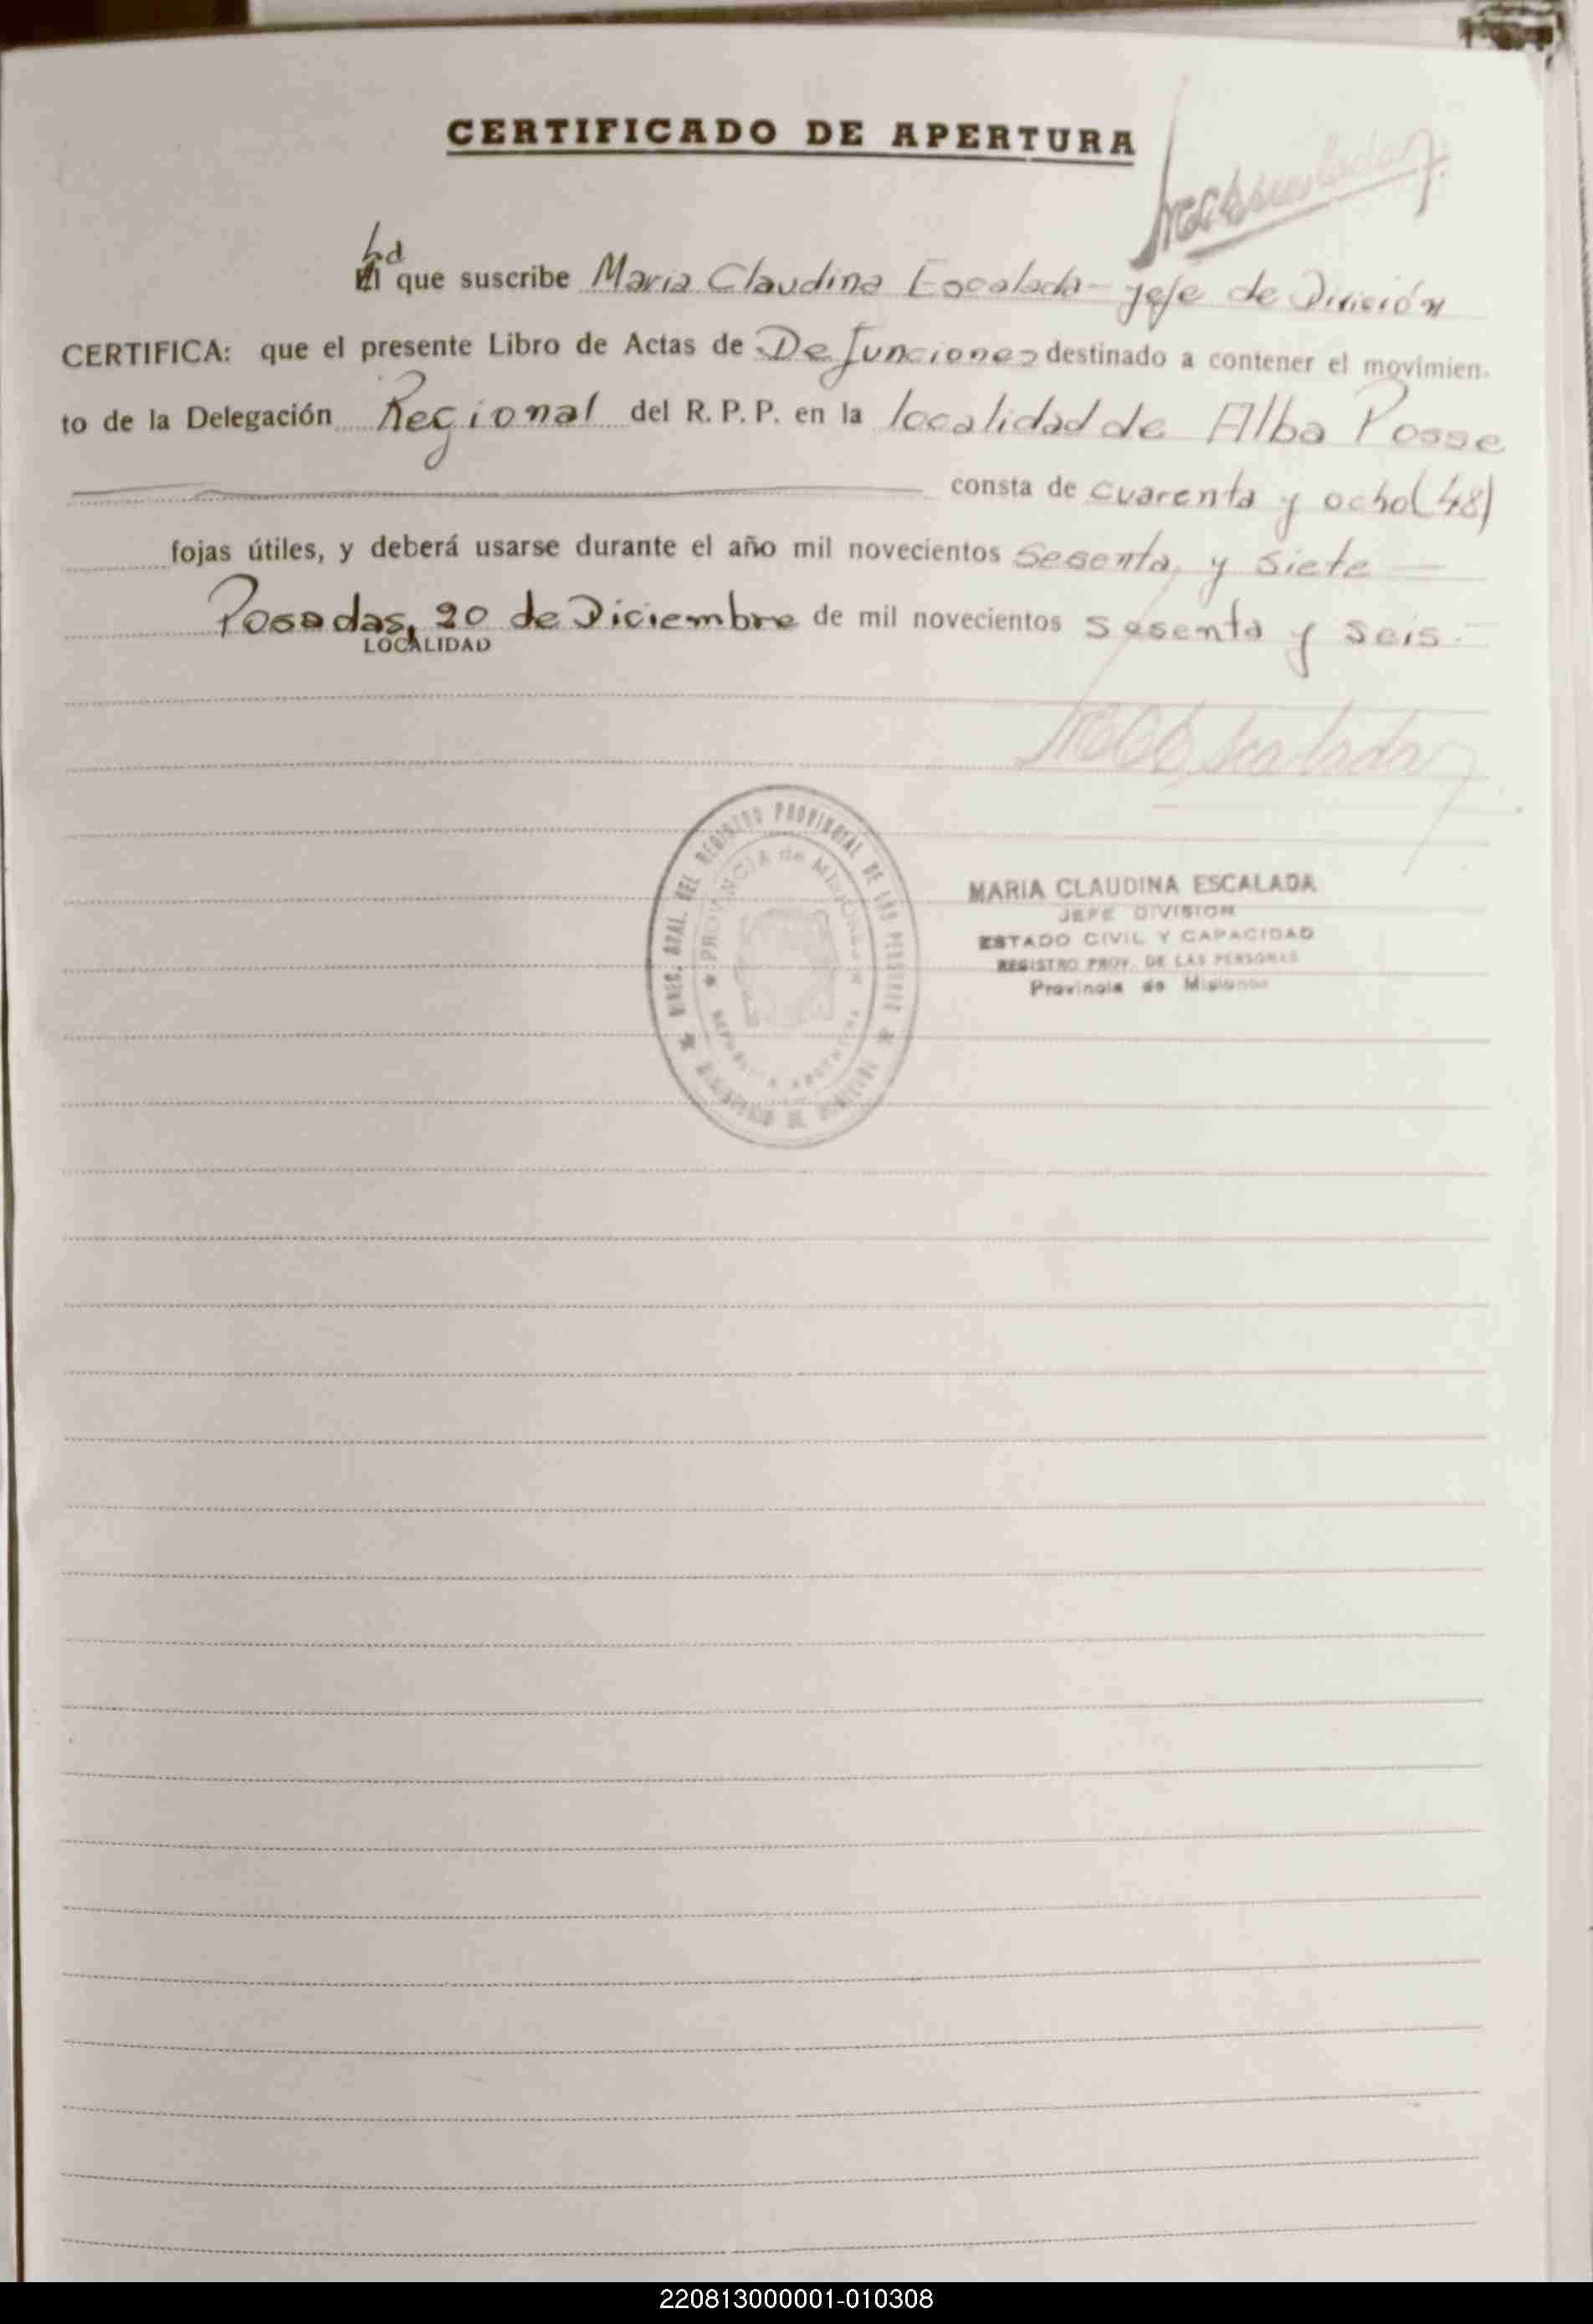 CERTIFICADO DE APERTURA
La que suscribe Maria Claudina Escalada - jefe de División
CERTIFICA: que el presente Libro de Actas de Defunciones destinado a contener el movimien-
to de la Delegación Regional del R. P. P. en la localidad de Alba Posse
consta de cuarenta y ocho (48)
fojas útiles, y deberá usarse durante el año mil novecientos sesenta y siete
Posadas, 20 de Diciembre de mil novecientos sesenta y seis.-
LOCALIDAD
DIREC. GRAL. DEL REGISTRO PROVINCIAL DE LAS PERSONAS
PROVINCIA de MISIONES
REPUBLICA ARGENTINA
MARIA CLAUDINA ESCALADA
JEFE DIVISION
ESTADO CIVIL Y CAPACIDAD
REGISTRO PROV. DE LAS PERSONAS
Provincia de Misiones
220813000001-010308